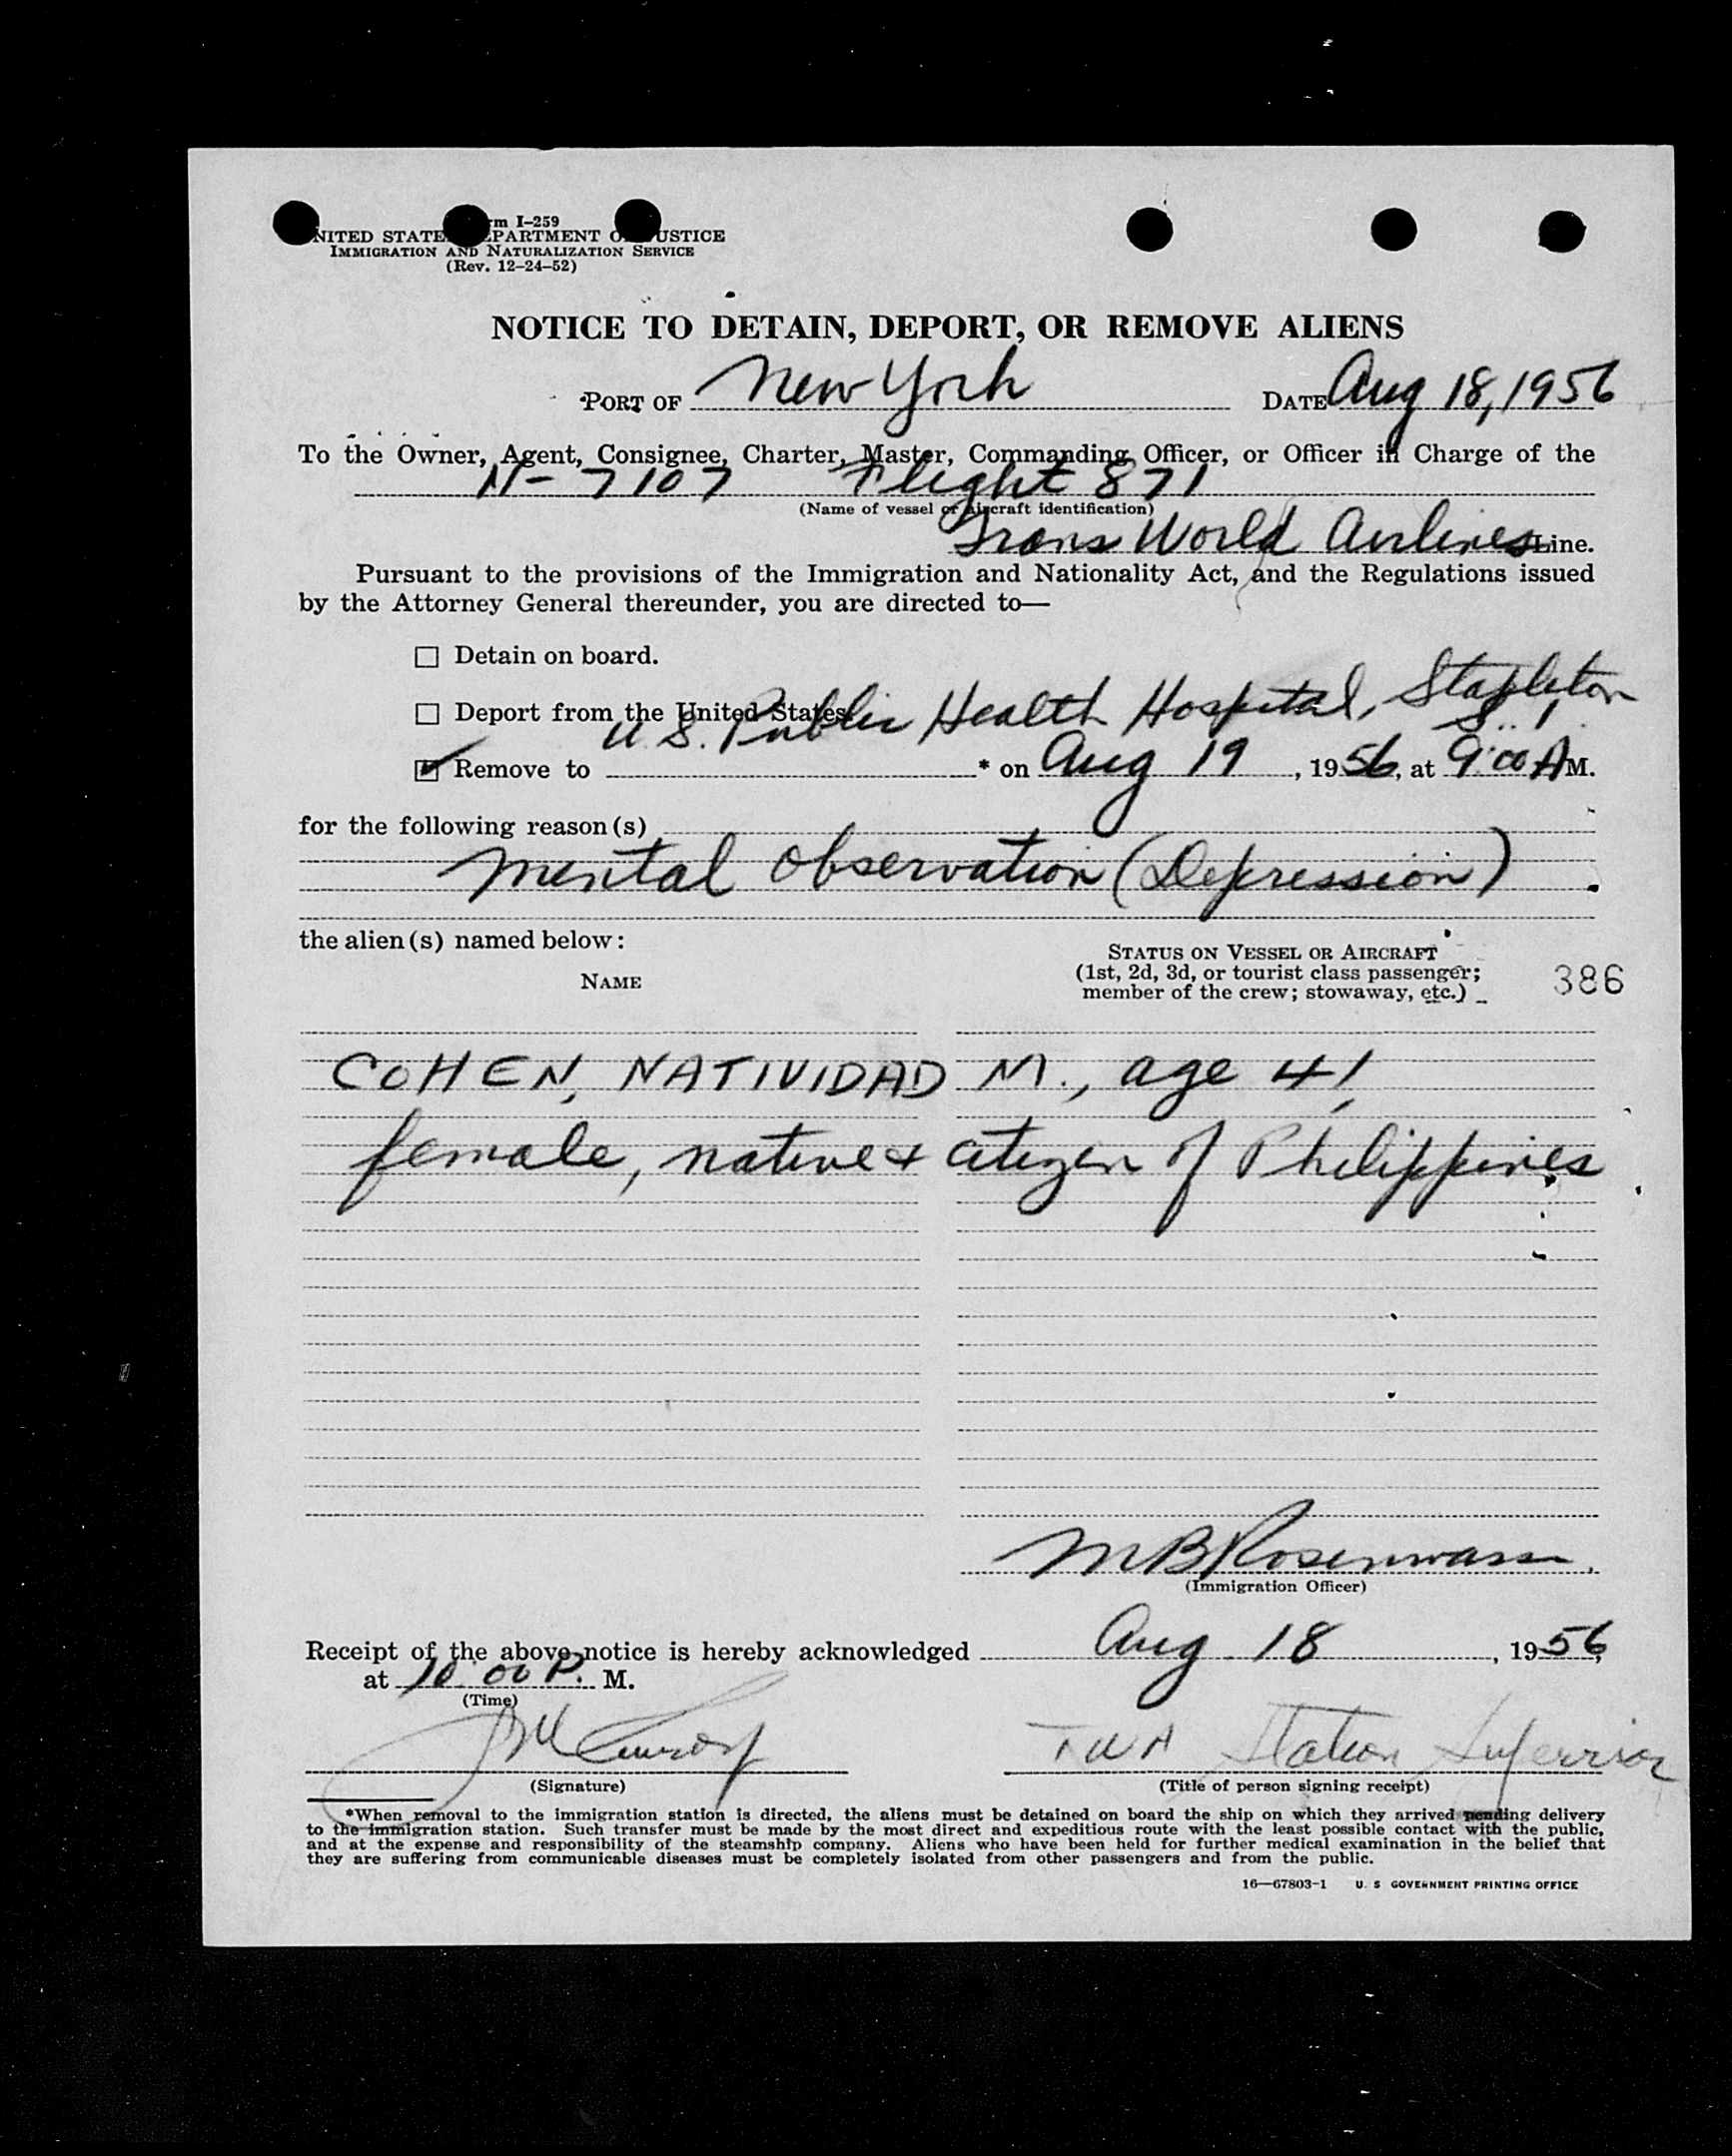 m I-259
NITED STATE EPARTMENT O USTICE
IMMIGRATION AND NATURALIZATION SERVICE
(Rev. 12-24-52)
NOTICE TO DETAIN, DEPORT, OR REMOVE ALIENS
PORT OF New York DATE Aug 18, 1956
To the Owner, Agent, Consignee, Charter, Master, Commanding Officer, or Officer in Charge of the
N-7107 Flight 871
(Name of vessel or aircraft identification)
Trans World Airlines Line.
Pursuant to the provisions of the Immigration and Nationality Act, and the Regulations issued
by the Attorney General thereunder, you are directed to—
☐ Detain on board.
☐ Deport from the United States.
U.S. Public Health Hospital, Stapleton
S.I.
Remove to * on Aug 19, 1956, at 9:00 A M.
for the following reason(s)
Mental Observation (Depression)
the alien(s) named below:
NAME
STATUS ON VESSEL OR AIRCRAFT
(1st, 2d, 3d, or tourist class passenger;
member of the crew; stowaway, etc.)
386
COHEN, NATIVIDAD M., age 41
female, native & citizen of Philippines
MB
(Immigration Officer)
Receipt of the above notice is hereby acknowledged Aug 18, 1956,
at 10:00 P. M.
(Time)
TWA Station
(Signature)
(Title of person signing receipt)
*When removal to the immigration station is directed, the aliens must be detained on board the ship on which they arrived pending delivery
to the immigration station. Such transfer must be made by the most direct and expeditious route with the least possible contact with the public,
and at the expense and responsibility of the steamship company. Aliens who have been held for further medical examination in the belief that
they are suffering from communicable diseases must be completely isolated from other passengers and from the public.
16—67803-1 U. S GOVERNMENT PRINTING OFFICE